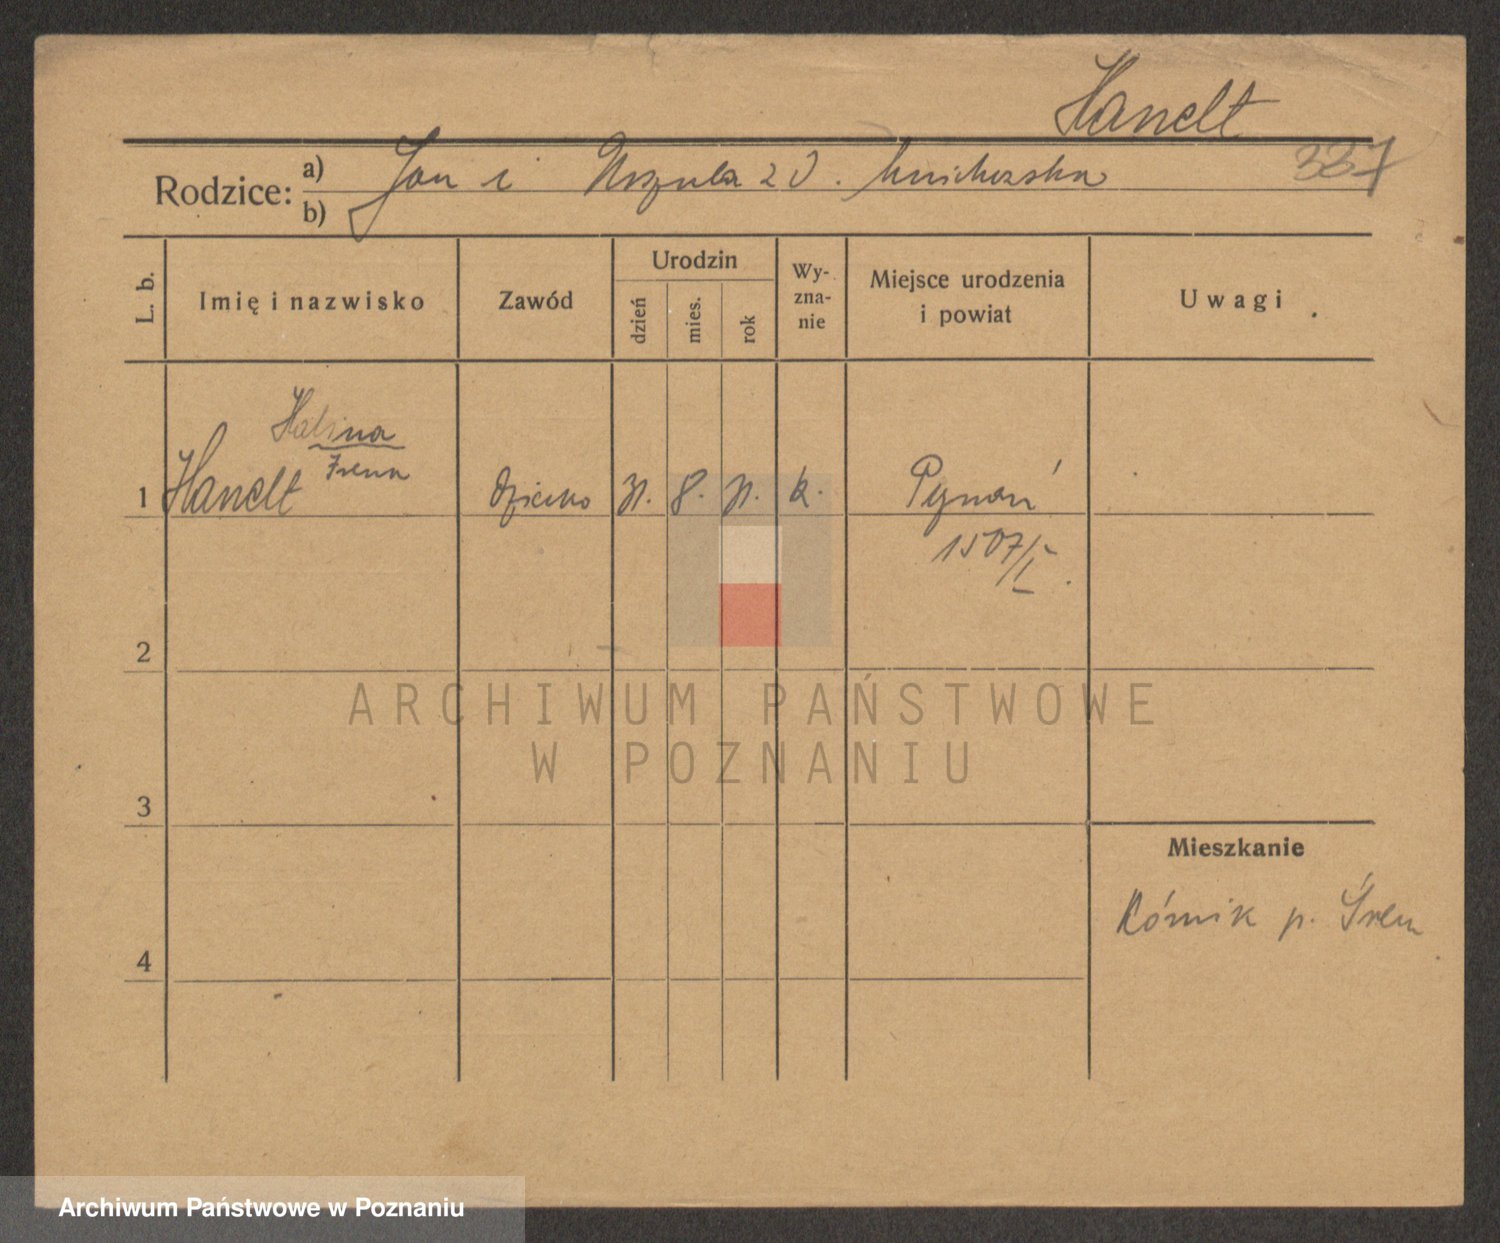 Hanelt
337
Rodzice: a) Jan i Urszula z d.
b)
L. b.
Imię i nazwisko
Zawód
Urodzin
dzień
mies.
rok
Wy-
zna-
nie
Miejsce urodzenia
i powiat
Uwagi
Halina
Irena
1 Hanelt dziecko 31. 8. 31. k. Poznań
1507/I.
2
ARCHIWUM PAŃSTWOWE
W POZNANIU
3
Mieszkanie
Kórnik p. Śrem
4
Archiwum Państwowe w Poznaniu